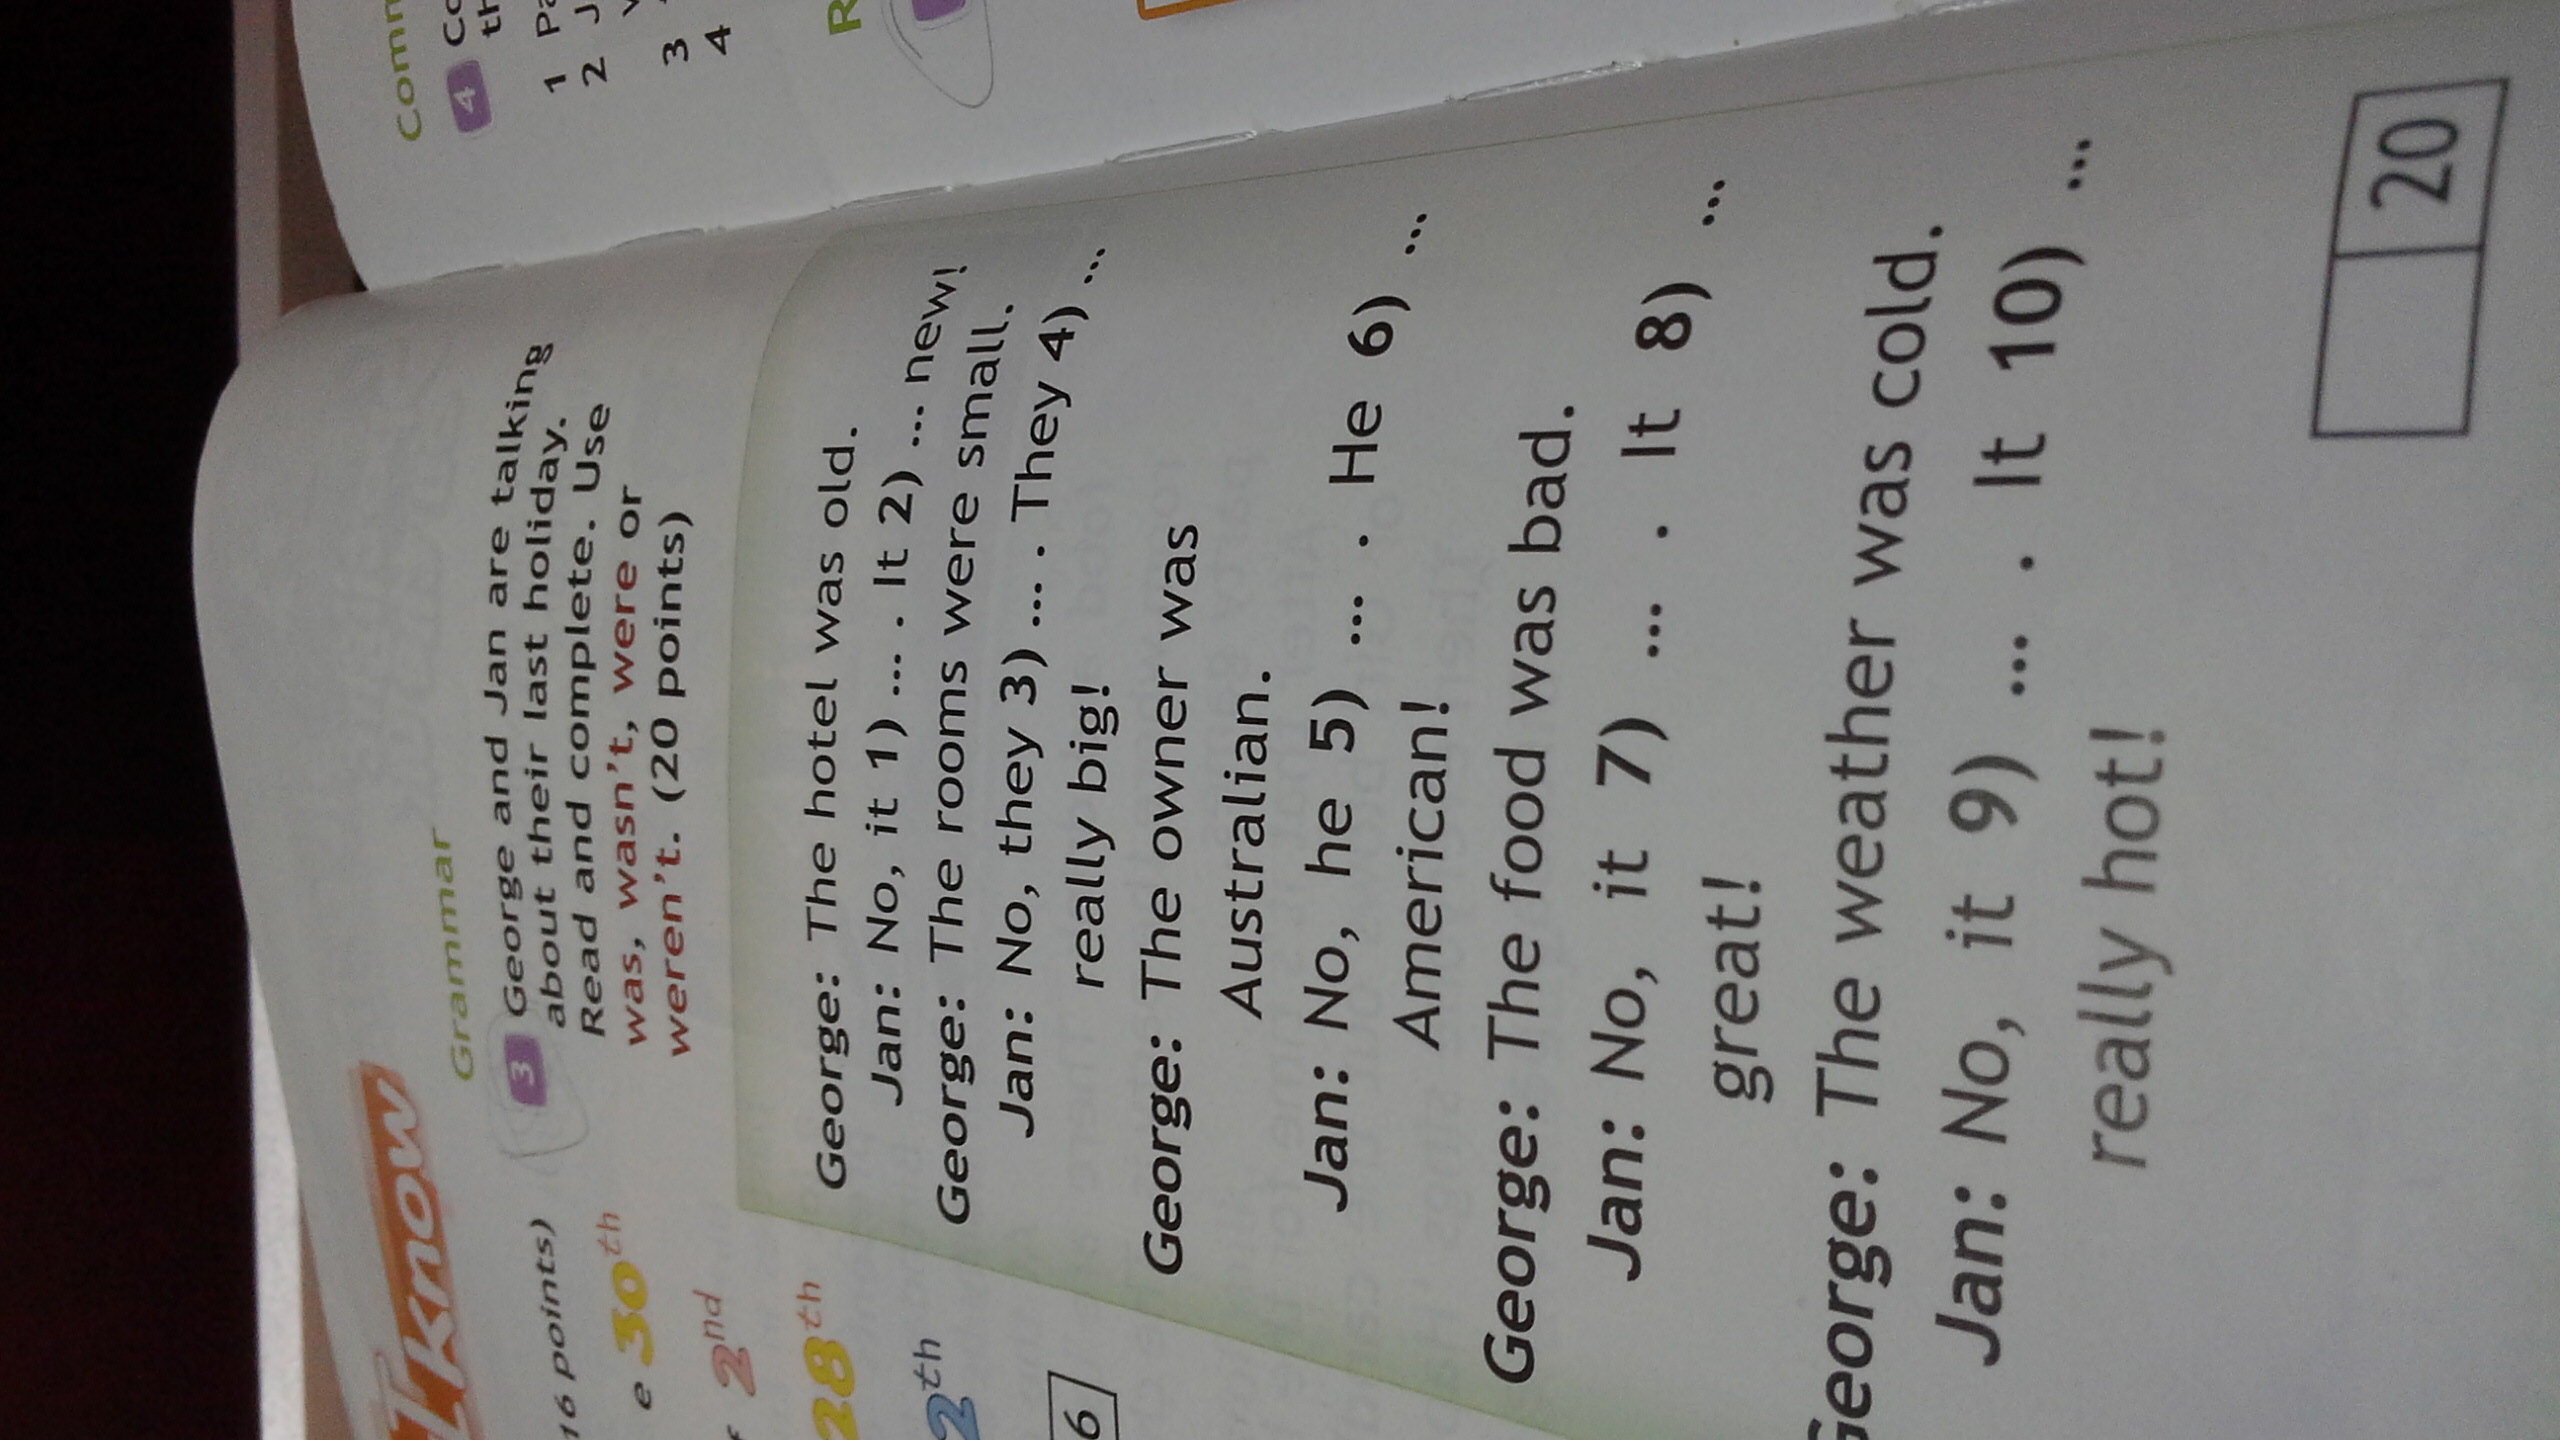 I Know
16 points)
e 30th
2nd
28th
2th
6
Grammar
3 George and Jan are talking
about their last holiday.
Read and complete. Use
was, wasn't, were or
weren't. (20 points)
George: The hotel was old.
Jan: No, it 1) ... . It 2) ... new!
George: The rooms were small.
Jan: No, they 3) ... . They 4) ...
really big!
George: The owner was
Australian.
Jan: No, he 5) ... . He 6) ...
American!
George: The food was bad.
Jan: No, it 7) ... . It 8) ...
great!
George: The weather was cold.
Jan: No, it 9) ... . It 10) ...
really hot!
20
Comm
4 Co
th
1 Pa
2 J
3
4
R